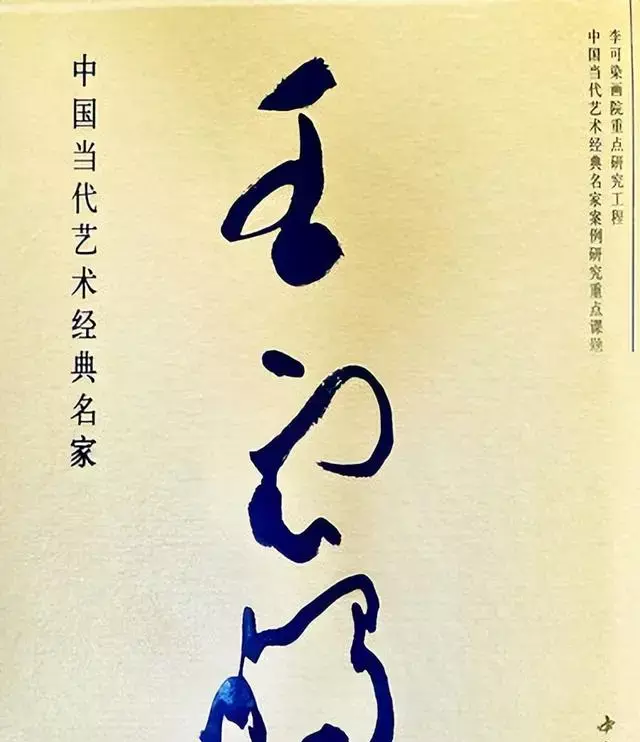 李可染画院重点研究工程
中国当代艺术经典名家案例研究重点课题
中
中国当代艺术经典名家